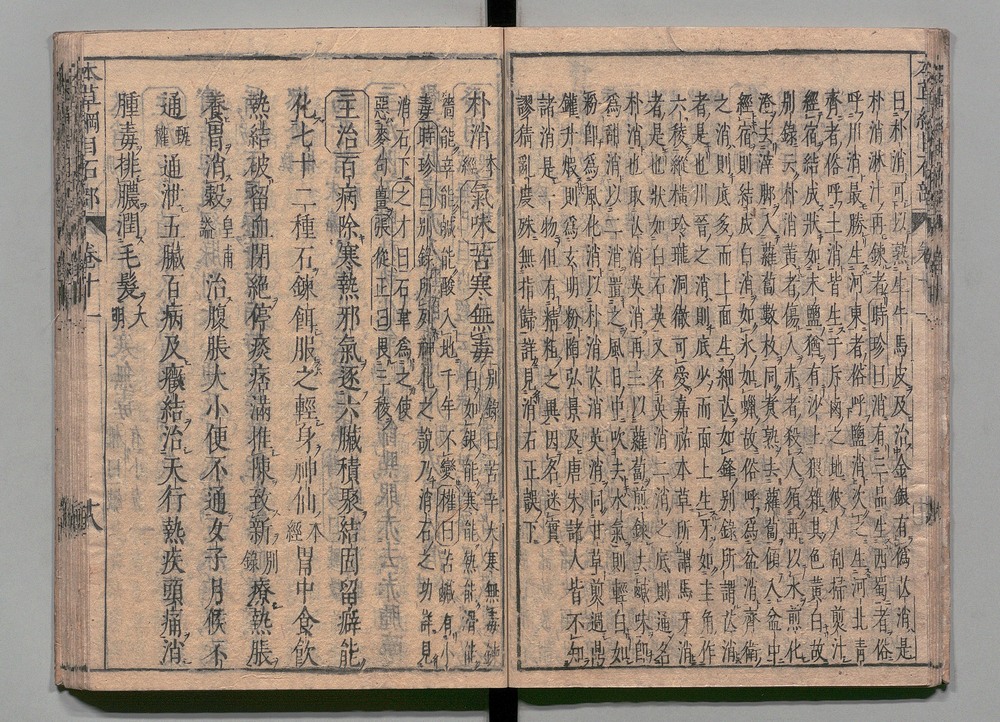 曰朴消可以熟生牛馬皮及治金銀有偽芒消是
朴消淋汁再鍊者時珍曰消有三品生西蜀者俗
呼川消最勝生河東者俗呼鹽消次之生河北青
齊者俗呼土消皆生于斥鹵之地彼人刮掃煎汁
經宿結成狀如末鹽猶有沙土猥雜其色黃白故
別錄云朴消黃者傷人赤者殺人須再以水煎化
澄去滓脚入蘿蔔數枚同煮熟去蘿蔔傾入盆中
經宿則結成白消如冰如蠟故俗呼為盆消齊衛
之消則底多而上面生細芒如鋒別錄所謂芒消
者是也川晉之消則底少而面上生牙如圭角作
六稜縱橫玲瓏洞徹可愛嘉祐本草所謂馬牙消
者是也狀如白石英又名英消二消之底則通名
朴消也取芒消英消再三以蘿蔔煎鍊去鹹味即
為甜消以二消置之風日中吹去水氣則輕白如
粉即為風化消以朴消芒消英消同甘草煎過鼎
罐升煅則為玄明粉陶弘景及唐宋諸人皆不知
諸消是一物但有精粗之異因名迷實
謬猜亂度殊無指歸詳見消石正誤下
朴消本經氣味苦寒無毒別錄曰苦辛大寒無毒
白如銀能寒能熱能滑能
濇能辛能鹹能酸入地千年不變權曰苦鹹有小
毒時珍曰別錄所列神化之說乃消石之功詳見
消石下之才曰石韋為之使
惡麥句薑張從正曰畏三稜
主治百病除寒熱邪氣逐六臟積聚結固留癖能
化七十二種石鍊餌服之輕身神仙本經胃中食飲
熱結破留血閉絕停痰痞滿推陳致新別錄療熱脹
養胃消穀皇甫謐治腹脹大小便不通女子月候不
通甄權通泄五臟百病及癥結治天行熱疾頭痛消
腫毒排膿潤毛髮大明
本草綱目石部
卷十一